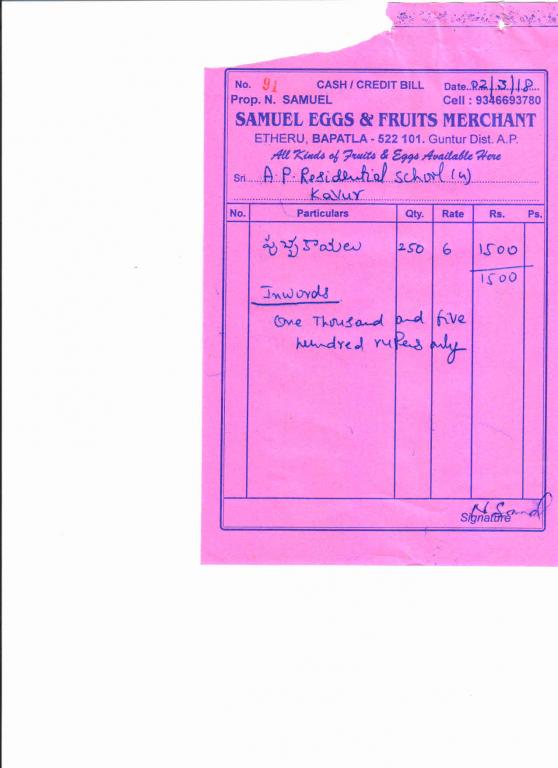 No. 91 CASH / CREDIT BILL Date 02/3/18
Prop. N. SAMUEL Cell : 9346693780
SAMUEL EGGS & FRUITS MERCHANT
ETHERU, BAPATLA - 522 101. Guntur Dist. A.P.
All Kinds of Fruits & Eggs Available Here
Sri A.P. Residential School (G)
Kavur
No. Particulars Qty. Rate Rs. Ps.
పుచ్చకాయలు 250 6 1500
1500
Inwords
One Thousand and five
hundred rupees only
Signature